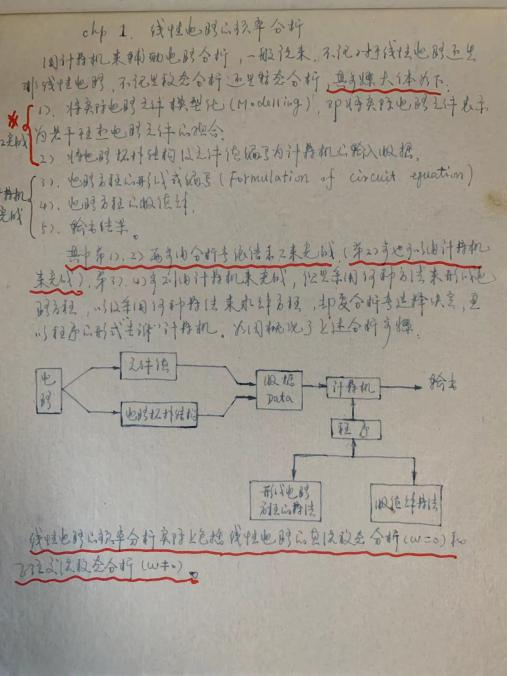 chp 1. 线性电路的频率分析
用计算机来辅助电路分析，一般说来，不论对于线性电路还是
非线性电路，不论是稳态分析还是暂态分析，其步骤大体如下：
1)、将实际电路元件模型化(Modelling)，即将实际电路元件表示
为若干理想电路元件的组合。
2)、将电路拓扑结构及元件值编写为计算机的输入数据。
3)、电路方程的形成或编写(Formulation of circuit equation)
4)、电路方程的数值解。
5)、输出结果。
人工完成
计算机完成
其中第1)、2)两步由分析者依结果来完成，(第2)步也可以由计算机
来完成)，第3)、4)步则由计算机来完成，但是采用何种方法来形成电
路方程，以及采用何种算法来求解方程，却要分析者选择决定，且
以程序的形式"告诉"计算机。下图概况了上述分析步骤。
电路
元件值
电路拓扑结构
数据 Data
计算机
输出
程序
形成电路方程的算法
数值解算法
线性电路的频率分析实际上包括线性电路的直流稳态分析(ω=0)和
正弦交流稳态分析(ω≠0)。